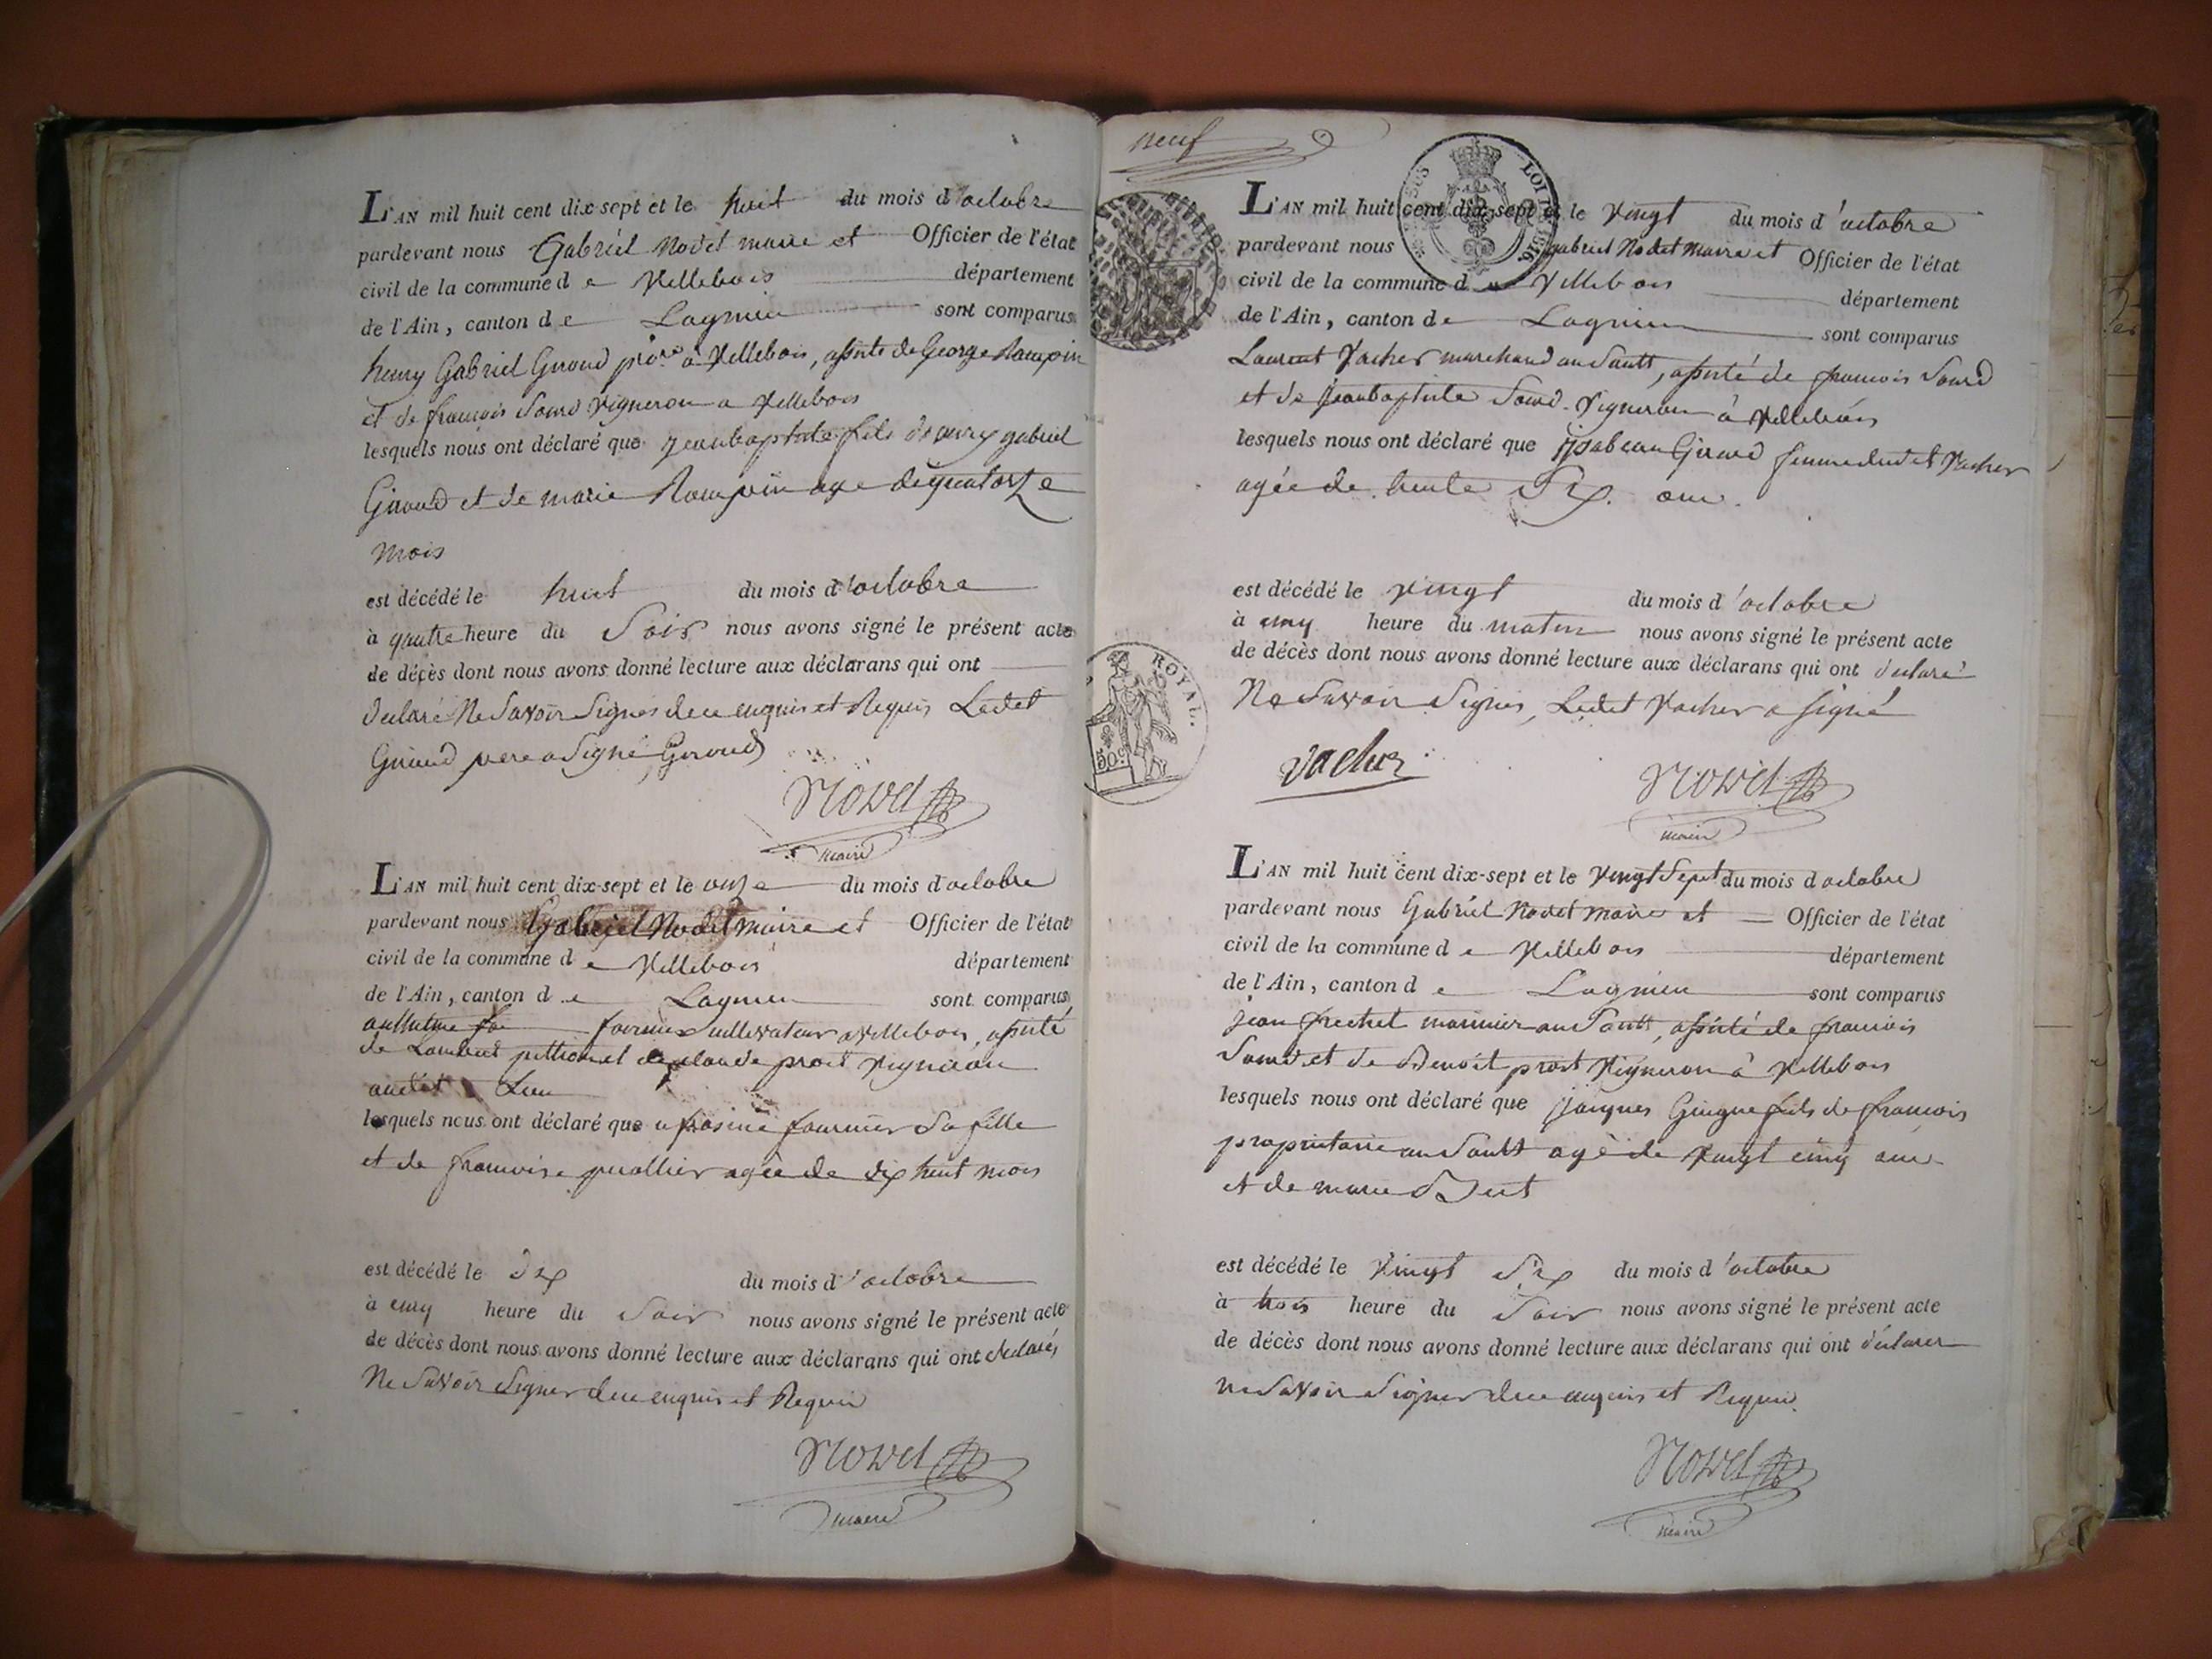 L'AN mil huit cent dix-sept et le huit du mois d'octobre
pardevant nous Gabriel Nodet maire et Officier de l'état
civil de la commune de Villebois département
de l'Ain, canton de Lagnieu sont comparus
henry Gabriel Giroud à Villebois, assisté de George Rampin
et de françois Sourd Vigneron a Villebois
lesquels nous ont déclaré que Jeanbaptiste fils de henry gabriel
Giroud et de marie Rampin age de quatorze
mois
est décédé le huit du mois d'octobre
à quatre heure du Soir nous avons signé le présent acte
de décès dont nous avons donné lecture aux déclarans qui ont
déclaré Ne Savoir Signer de ce enquis et Requis Ledet
Giroud pere a Signé Giroud
Nodet
maire
L'AN mil huit cent dix-sept et le onze du mois d'octobre
pardevant nous Gabriel Nodet maire et Officier de l'état
civil de la commune de Villebois département
de l'Ain, canton de Lagnieu sont comparus
anthelme fournier Cultivateur a Villebois, assisté
de Lambert et de claude prost Vigneron
audit Lieu
lesquels nous ont déclaré que fournier Sa fille
et de francoise agée de dix huit mois
est décédé le Dix du mois d'octobre
à cinq heure du Soir nous avons signé le présent acte
de décès dont nous avons donné lecture aux déclarans qui ont declarés
Ne Savoir Signer de ce enquis et Requis
Nodet
maire
neuf
LOI 1816
ROYAL.
50c
L'AN mil huit cent dix-sept et le Vingt du mois d'octobre
pardevant nous gabriel Nodet Maire et Officier de l'état
civil de la commune de Villebois département
de l'Ain, canton de Lagnieu sont comparus
Laurent Vacher marchand au Sault, assisté de francois Sourd
et de Jeanbaptiste Sourd Vigneron à Villebois
lesquels nous ont déclaré que Isabeau Giroud femme dudet Vacher
agée de trente Six ans
est décédé le Vingt du mois d'octobre
à cinq heure du matin nous avons signé le présent acte
de décès dont nous avons donné lecture aux déclarans qui ont declaré
Ne Savoir Signer, Ledet Vacher a signé
Vacher
Nodet
maire
L'AN mil huit cent dix-sept et le Vingt Sept du mois d'octobre
pardevant nous Gabriel Nodet Maire et Officier de l'état
civil de la commune de Villebois département
de l'Ain, canton de Lagnieu sont comparus
jean frechet marinier au Sault, assisté de francois
Sourd et de Benoit prost Vigneron à Villebois
lesquels nous ont déclaré que jacques Gingue fils de francois
proprietaire au Sault agé de Vingt cinq ans
et de marie
est décédé le Vingt Six du mois d'octobre
à trois heure du Soir nous avons signé le présent acte
de décès dont nous avons donné lecture aux déclarans qui ont déclarer
ne Savoir Signer de ce enquis et Requis.
Nodet
maire